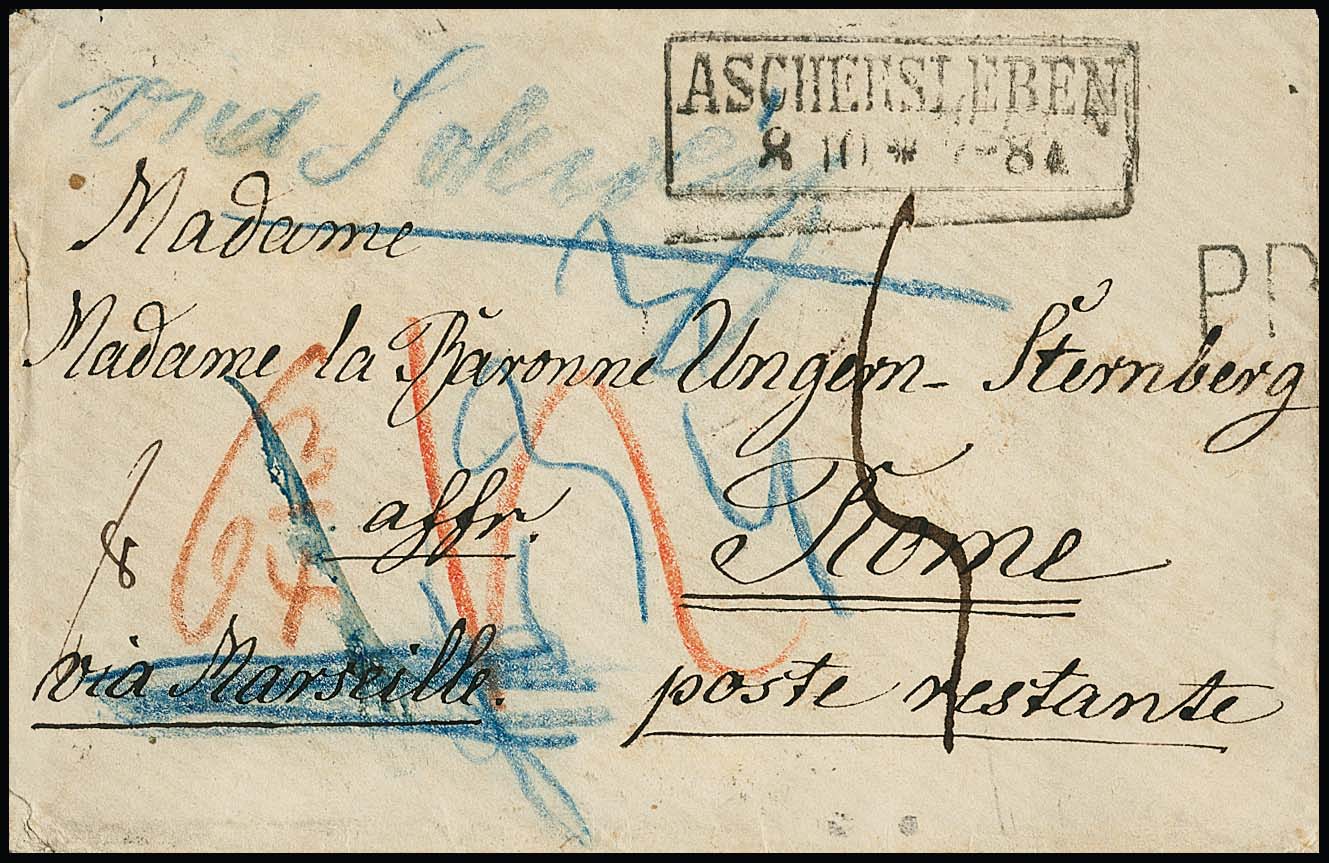 via Schweiz
ASCHERSLEBEN
8 10 * 7-8
Madame
PD
Madame la Baronne Ungern-Sternberg
affr.
Rome
via Marseille.
poste restante